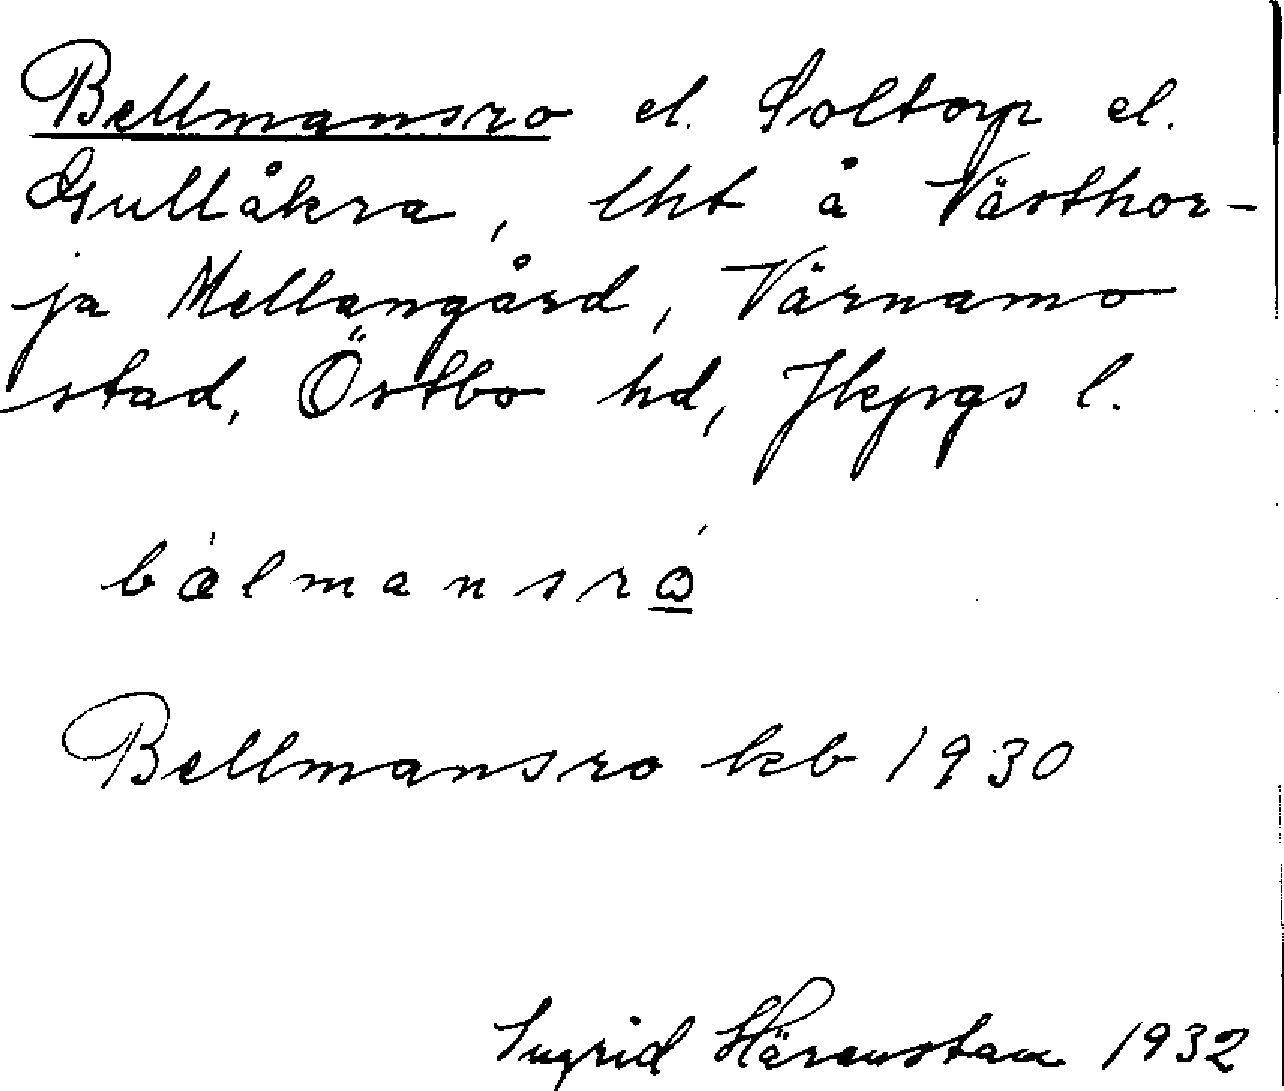 Bellmansro el. Soltorp el.
Gullåkra, lht å Västhor-
ja Mellangård, Värnamo
stad, Östbo hd, Jkpgs l.
bælmansrω
Bellmansro kb 1930
Ingrid Härenstam 1932